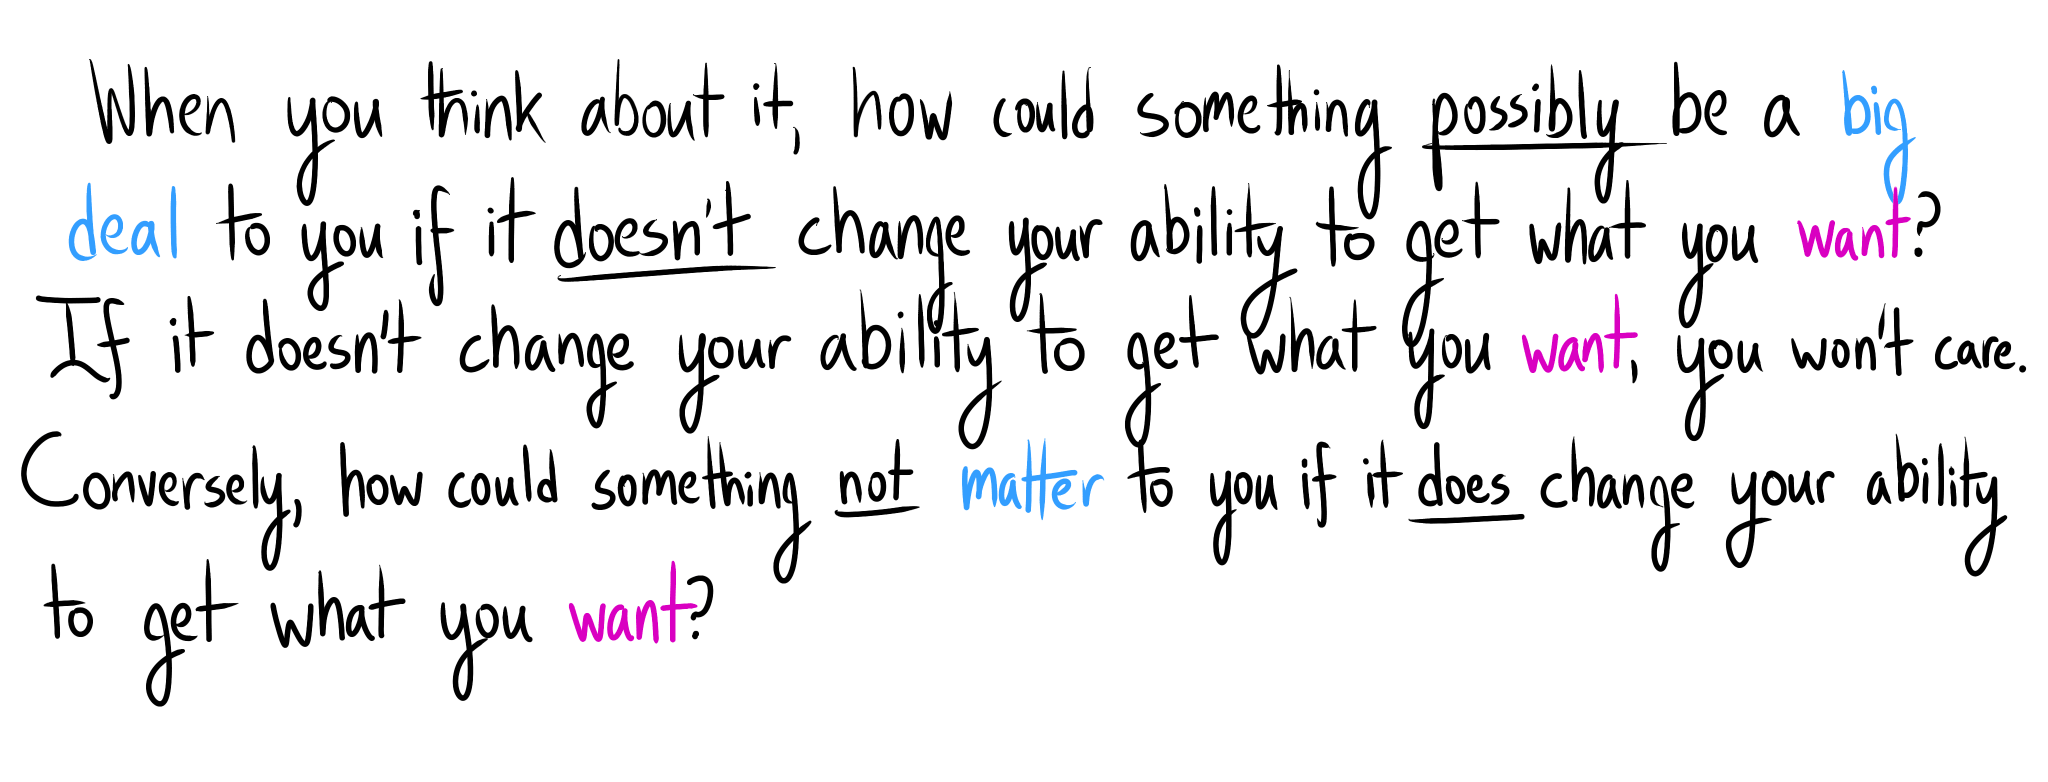 When you think about it, how could something possibly be a big
deal to you if it doesn't change your ability to get what you want?
If it doesn't change your ability to get what you want, you won't care.
Conversely, how could something not matter to you if it does change your ability
to get what you want?